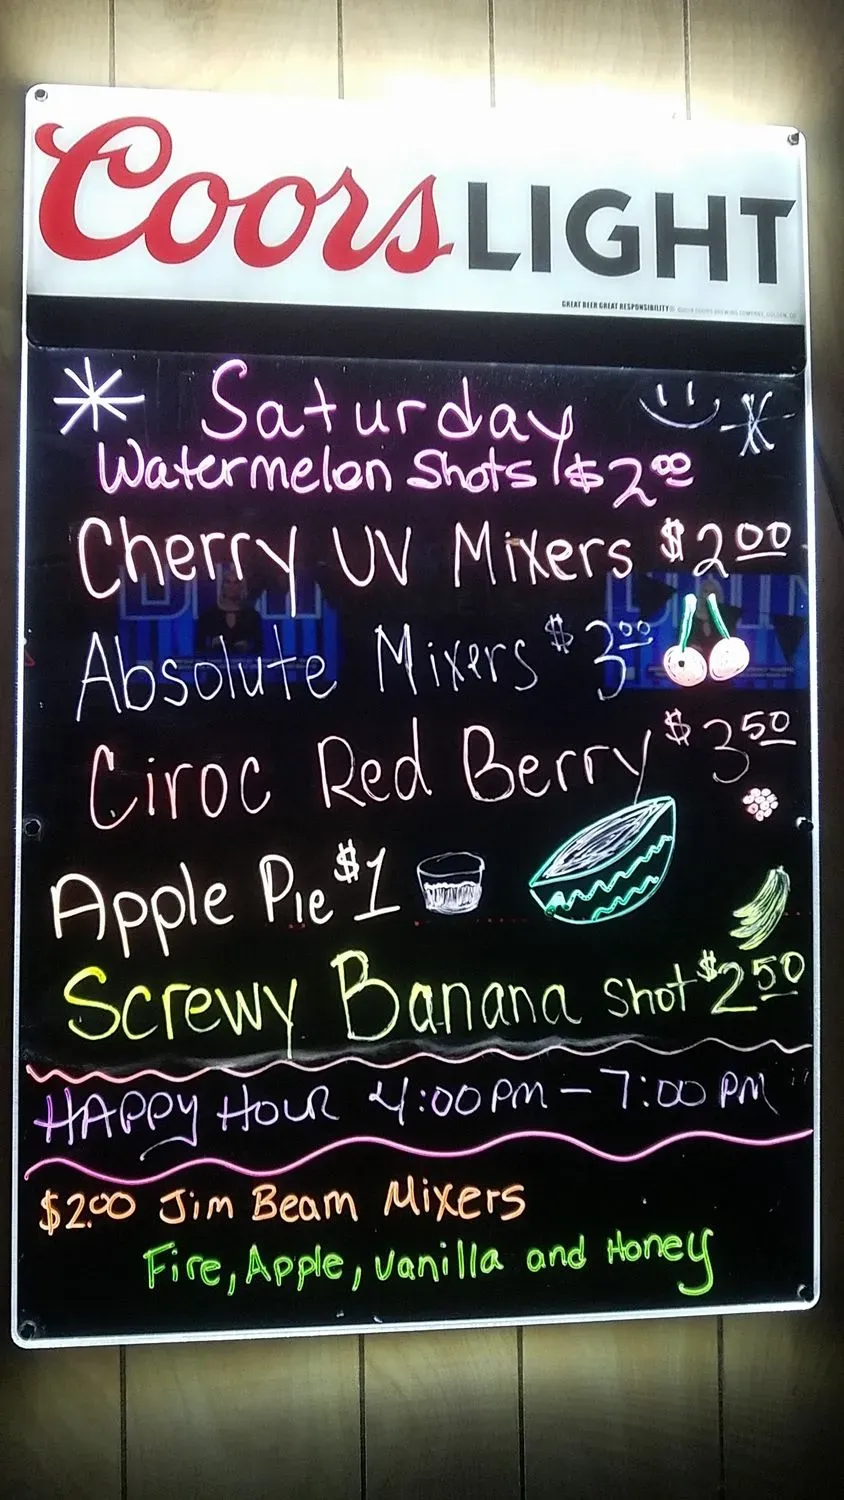 Coors LIGHT
GREAT BEER GREAT RESPONSIBILITY®
Saturday
Watermelon Shots $2.00
Cherry UV Mixers $2.00
Absolute Mixers $3.00
Ciroc Red Berry $3.50
Apple Pie $1
Screwy Banana Shot $2.50
HAPPY HOUR 4:00 PM - 7:00 PM
$2.00 Jim Beam Mixers
Fire, Apple, Vanilla and Honey